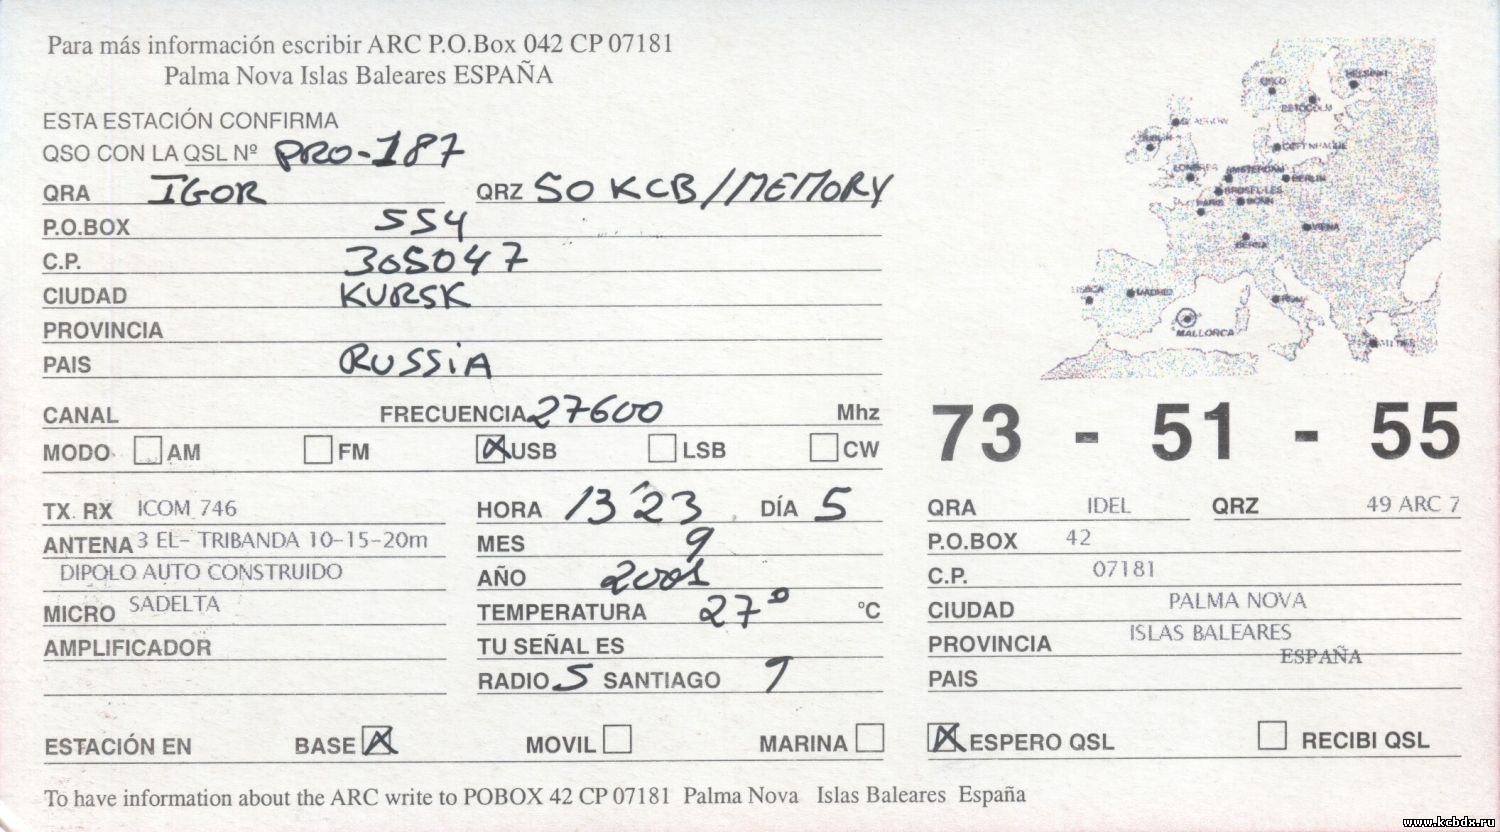 Para más información escribir ARC P.O.Box 042 CP 07181
Palma Nova Islas Baleares ESPAÑA
ESTA ESTACIÓN CONFIRMA
QSO CON LA QSL Nº PRO-187
QRA IGOR QRZ 50 KCB/MEMORY
P.O.BOX 554
C.P. 305047
CIUDAD KURSK
PROVINCIA
PAIS RUSSiA
CANAL FRECUENCIA 27600 Mhz
MODO AM FM USB LSB CW
TX. RX ICOM 746
ANTENA 3 EL- TRIBANDA 10-15-20m
DIPOLO AUTO CONSTRUIDO
MICRO SADELTA
AMPLIFICADOR
HORA 13´23 DÍA 5
MES 9
AÑO 2001
TEMPERATURA 27º ºC
TU SEÑAL ES
RADIO 5 SANTIAGO 9
ESTACIÓN EN BASE MOVIL MARINA
OSLO
HELSINKI
ESTOCOLM
GLASGOW
DUBLIN
COPENHAGUE
LONDRES
AMSTERDAM
BERLIN
BRUSEL-LES
PARIS
BONN
VIENA
BERNA
LISBOA
MADRID
ROMA
MALLORCA
73 - 51 - 55
QRA IDEL QRZ 49 ARC 7
P.O.BOX 42
C.P. 07181
CIUDAD PALMA NOVA
PROVINCIA ISLAS BALEARES
ESPAÑA
PAIS
ESPERO QSL RECIBI QSL
To have information about the ARC write to POBOX 42 CP 07181 Palma Nova Islas Baleares España
www.kcbdx.ru